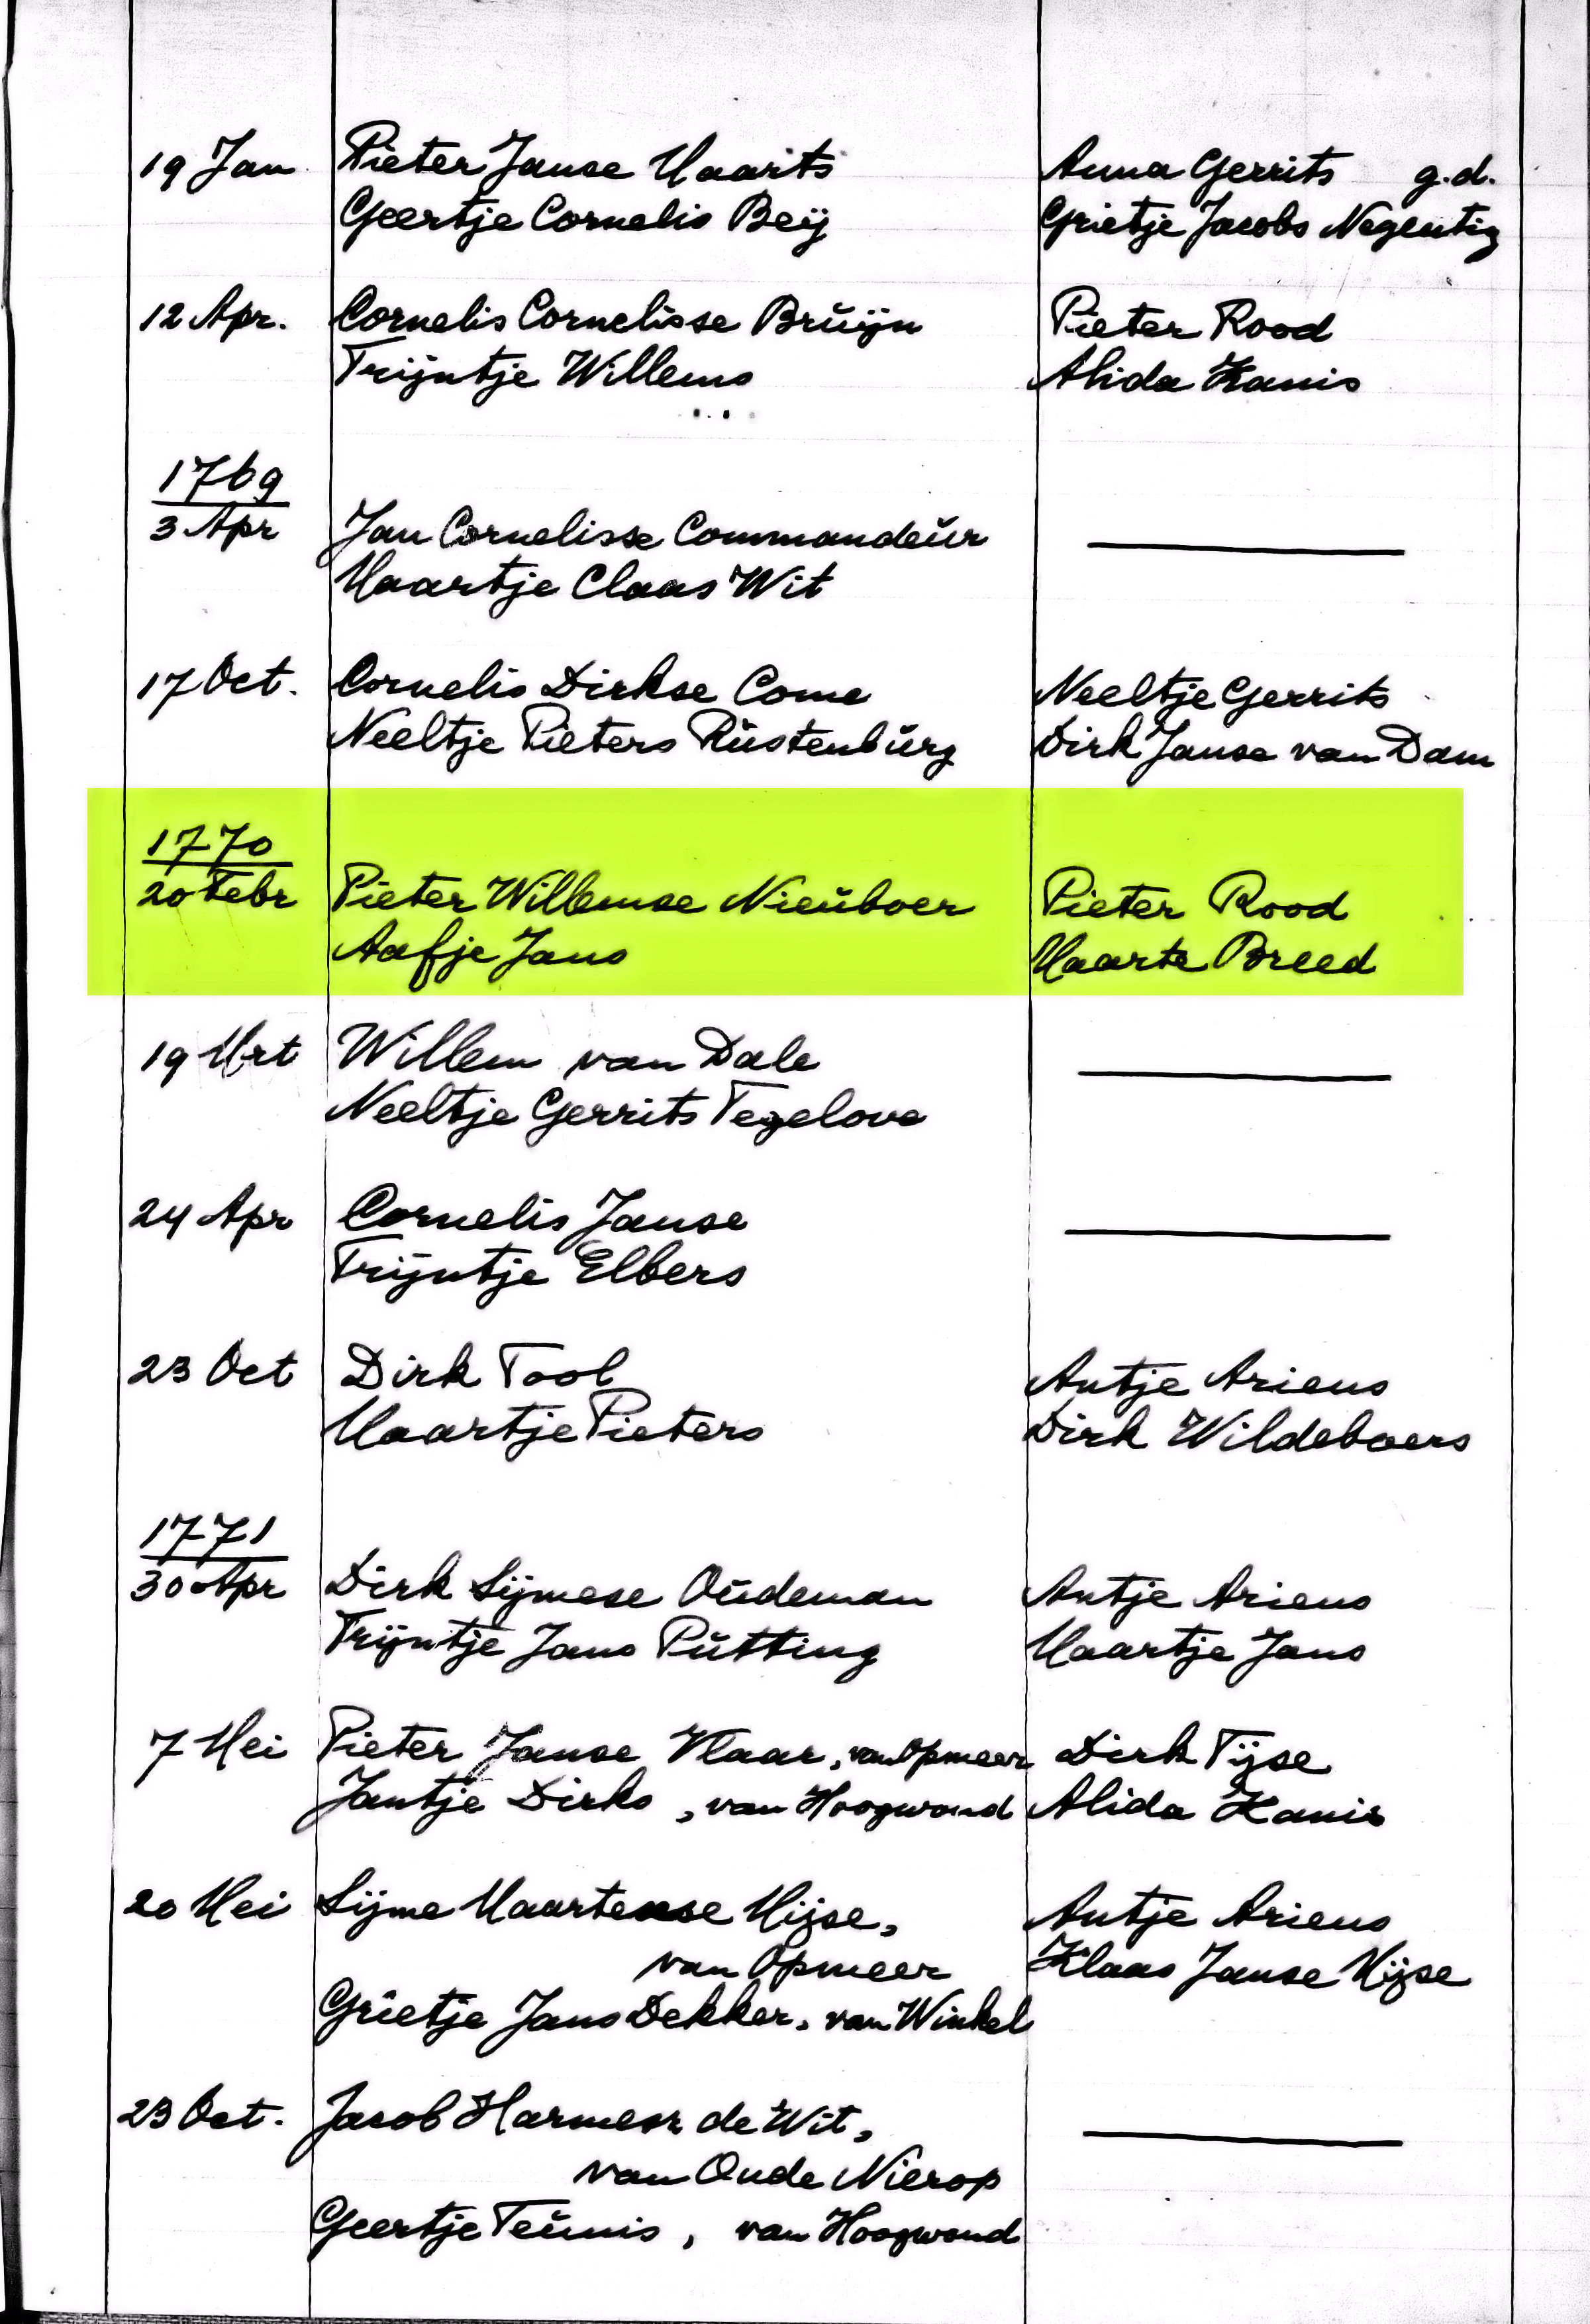 19 Jan Pieter Janse Maarts Anna Gerrits g.d.
Geertje Cornelis Beij Grietje Jacobs Negentig
12 Apr. Cornelis Cornelisse Bruijn Pieter Rood
Trijntje Willems Alida Kanis
1769
3 Apr Jan Cornelisse Commandeur
Maartje Claas Wit
17 Oct. Cornelis Dirkse Come Neeltje Gerrits
Neeltje Pieters Rustenburg Dirk Janse van Dam
1770
20 Febr Pieter Willemse Nieuboer Pieter Rood
Aafje Jans Maarte Breed
19 Mrt Willem van Dale
Neeltje Gerrits Tegelove
24 Apr Cornelis Janse
Trijntje Elbers
23 Oct Dirk Tool Antje Ariens
Maartje Pieters Dirk Wildeboers
1771
30 Apr Dirk Sijmese Oudeman Antje Ariens
Trijntje Jans Putting Maartje Jans
7 Mei Pieter Janse Vlaar, van Opmeer Dirk Tijse
Jantje Dirks, van Hoogwoud Alida Kanis
20 Mei Sijme Maartense Mijse, Antje Ariens
van Opmeer Klaas Janse Mijse
Grietje Jans Dekker, van Winkel
23 Oct. Jacob Harmesz de Wit,
van Oude Nierop
Geertje Teunis, van Hoogwoud